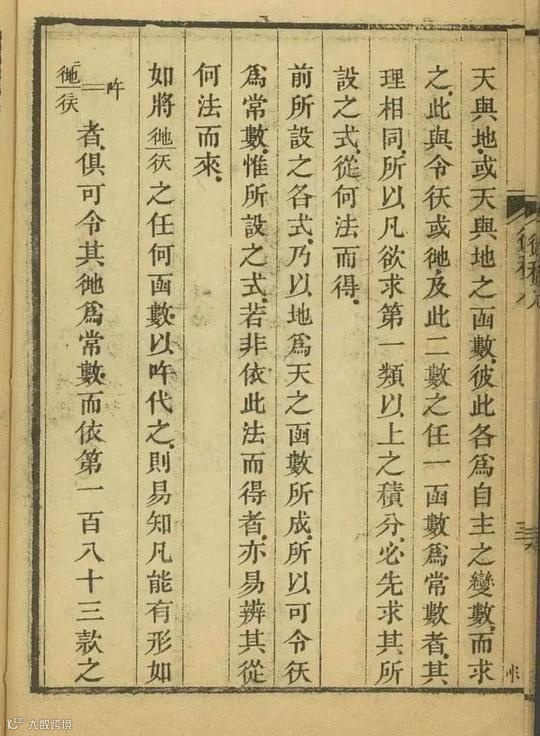 天與地,或天與地之函數,彼此各爲自主之變數,而求
之,此與令𢓍或𢓧,及此二數之任一函數爲常數者,其
理相同,所以凡欲求第一類以上之積分,必先求其所
設之式,從何法而得.
前所設之各式,乃以地爲天之函數所成,所以可令𢓍
爲常數,惟所設之式,若非依此法而得者,亦易辨其從
何法而來.
如將 彵/𢓍 之任何函數,以吘代之,則易知凡能有形如
彵/𢓍 二 吘 者,俱可令其彵爲常數,而依第一百八十三款之
大數跨境